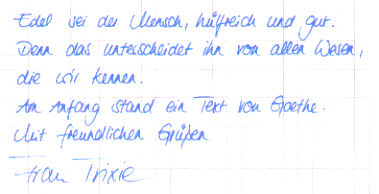 Edel sei der Mensch, hülfreich und gut.
Denn das unterscheidet ihn von allen Wesen,
die wir kennen.
Am Anfang stand ein Text von Goethe.
Mit freundlichen Grüßen
Frau Trixie